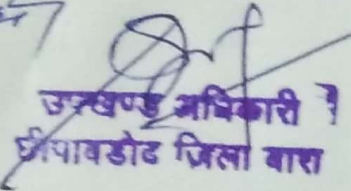 उपखण्ड अधिकारी
छीपाबडोद जिला बारा